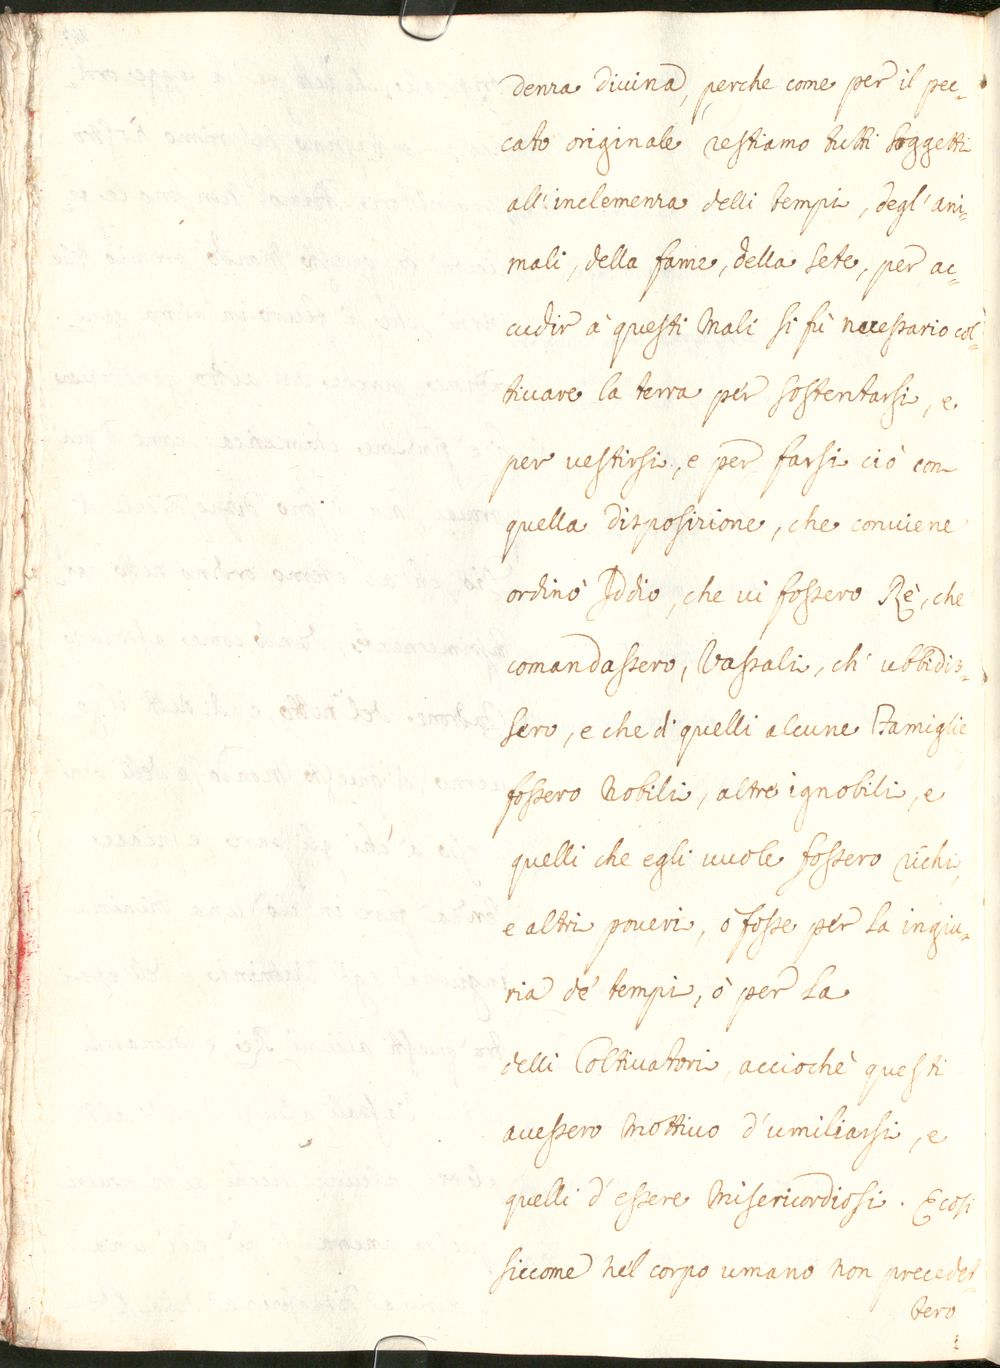 denza diuina, perche come per il pec=
cato originale restiamo tutti soggetti
all'inclemenza delli tempi, degl'ani=
mali, della fame, della sete, per ac=
cudir à questi mali si fù necessario col=
tiuare la terra per sostentarsi, e
per uestirsi, e per farsi ciò con
quella disposizione, che conuiene
ordinò Iddio, che ui fossero Rè, che
comandassero, Vassali, ch'ubbidis=
sero, e che di quelli alcune Famiglie
fossero Nobili, altre ignobili, e
quelli che egli uuole fossero richi,
e altri poueri, ò fosse per la ingiu=
ria de' tempi, ò per la
delli Coltiuatori, acciochè questi
auessero Mottiuo d'umiliarsi, e
quelli d'essere Misericordiosi. E così
siccome nel corpo umano non precedet
tero